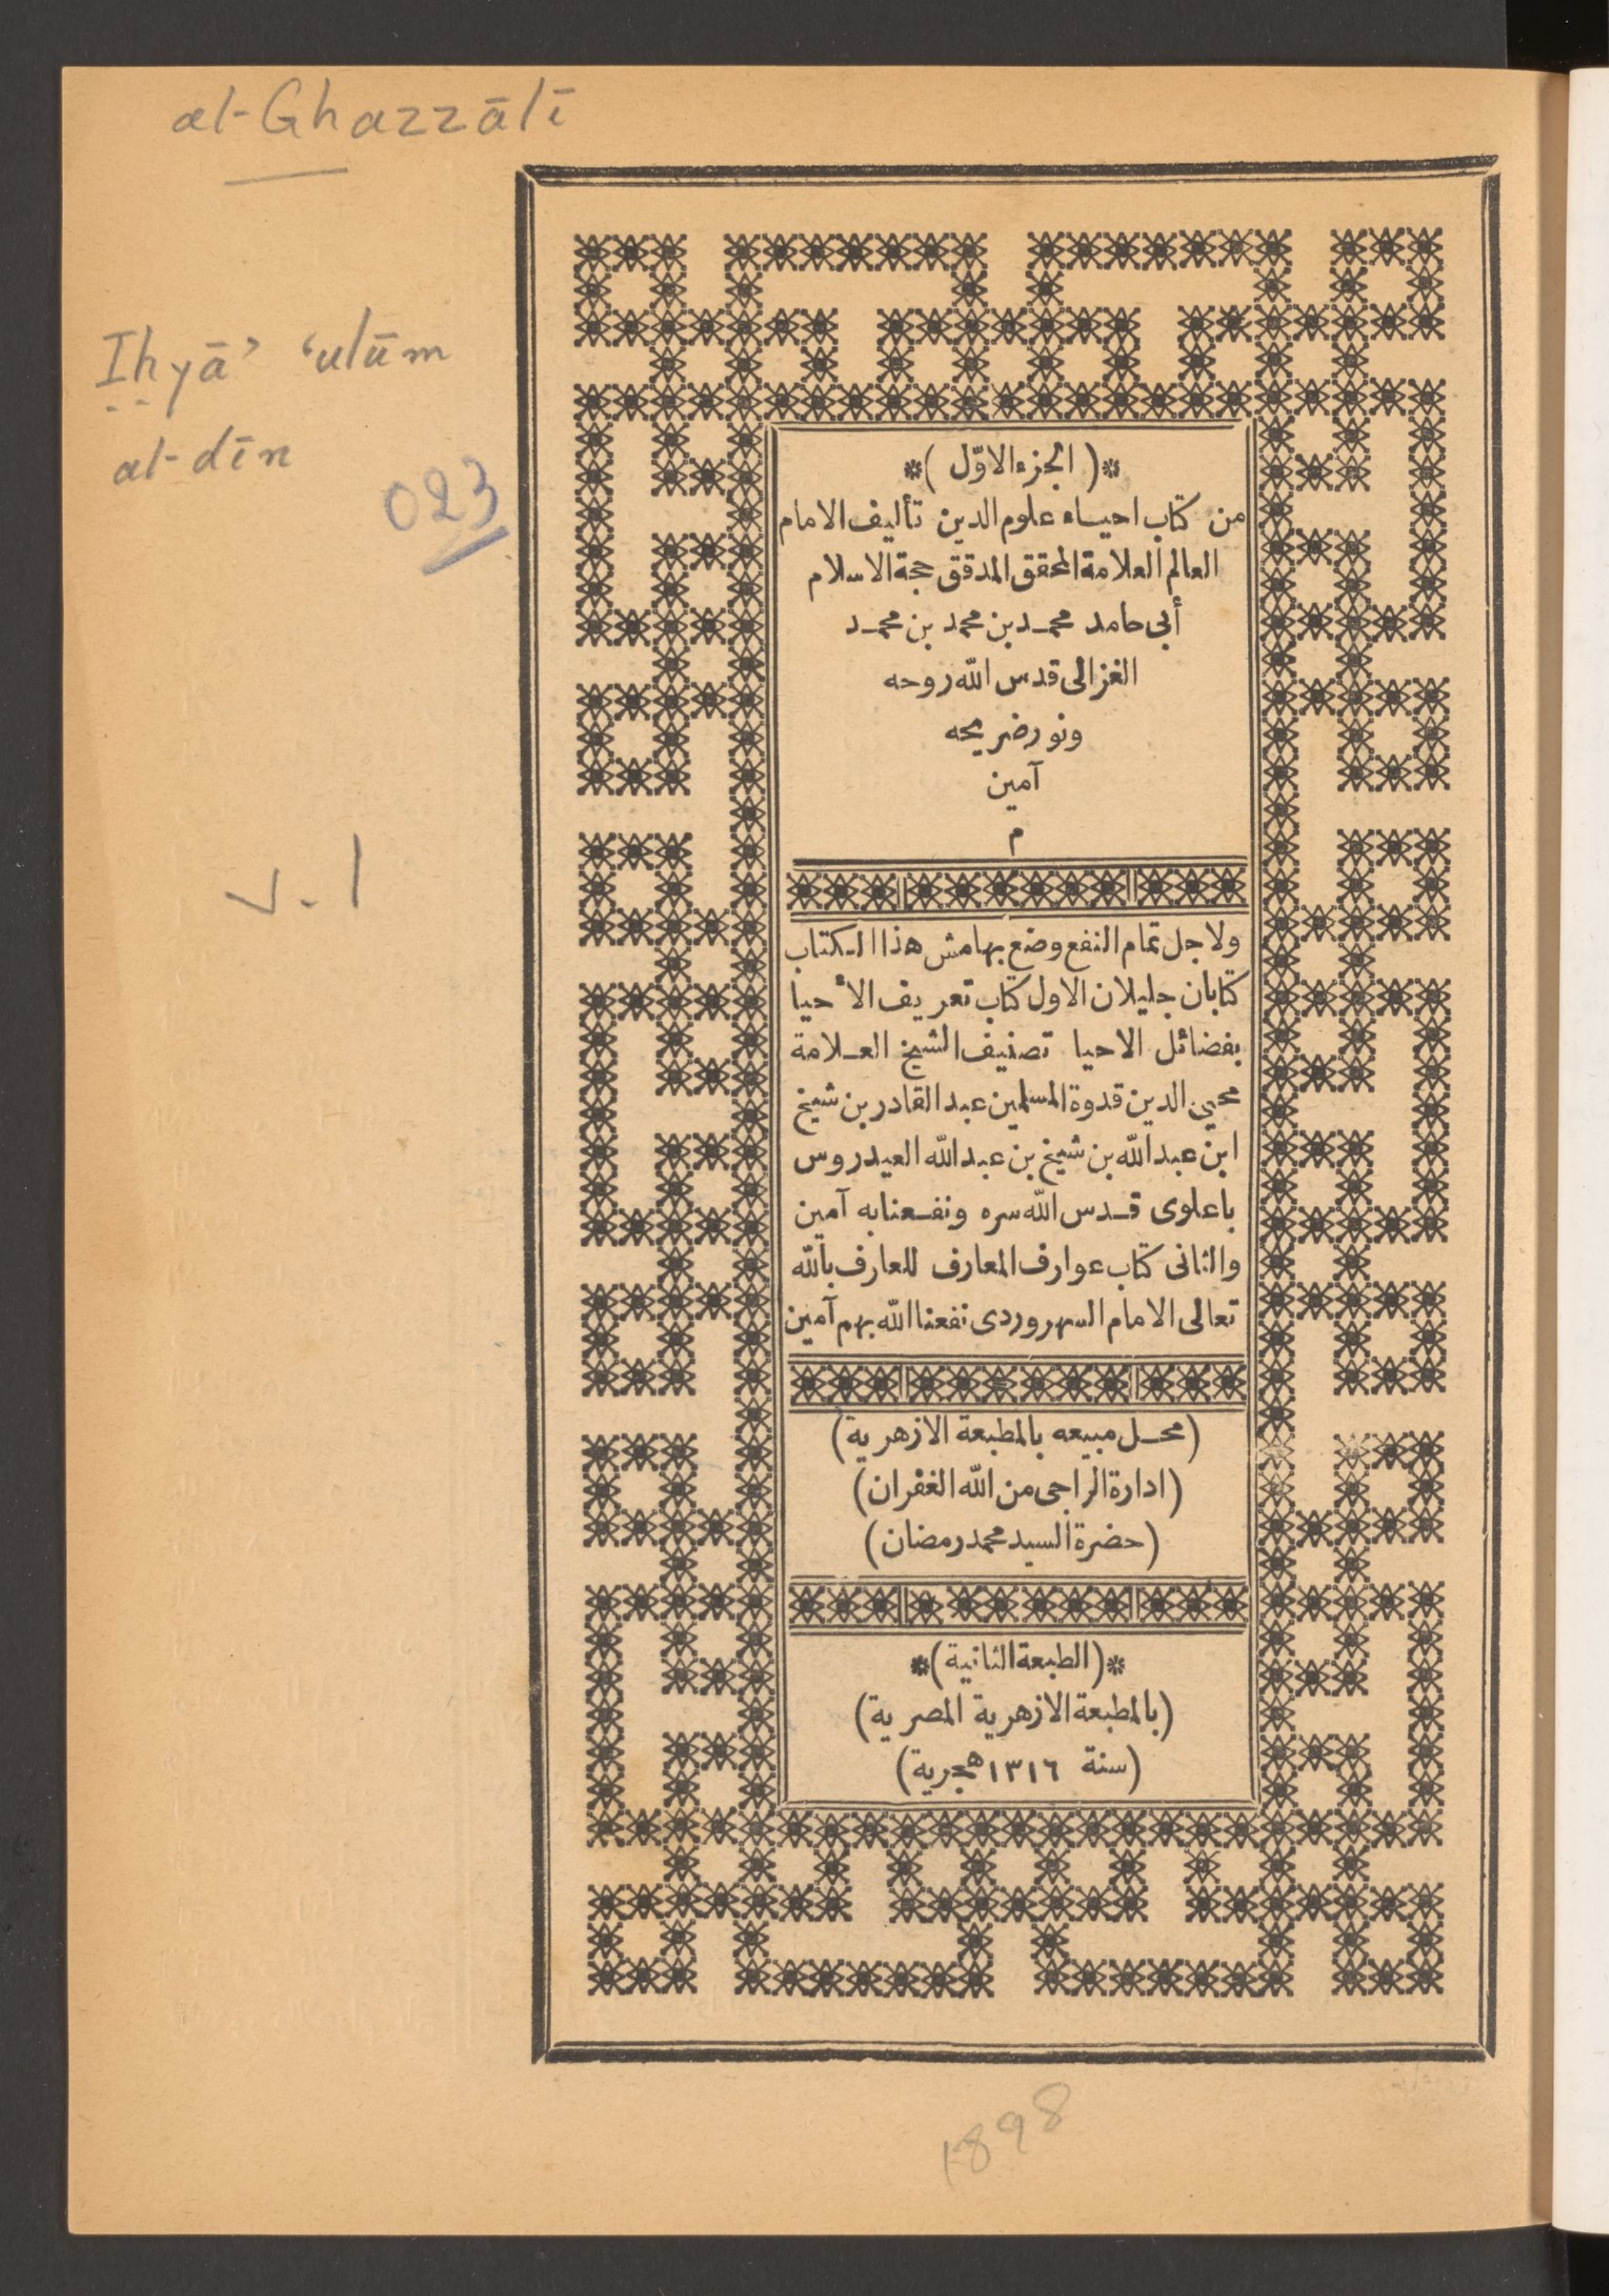 al-Ghazzālī
Iḥyā' 'ulūm
al-dīn
023
v. 1
*( الجزء الاوّل )*
من كتاب احياء علوم الدين تأليف الامام
العالم العلامة المحقق المدقق حجة الاسلام
أبى حامد محمد بن محمد بن محمد
الغزالى قدس الله روحه
ونور ضريحه
آمين
م
ولاجل تمام النفع وضع بهامش هذا الكتاب
كتابان جليلان الاول كتاب تعريف الأحيا
بفضائل الاحيا تصنيف الشيخ العلامة
محيي الدين قدوة المسلمين عبد القادر بن شيخ
ابن عبد الله بن شيخ بن عبد الله العيدروس
باعلوى قدس الله سره ونفعنا به آمين
والثانى كتاب عوارف المعارف للعارف بالله
تعالى الامام السهروردى نفعنا الله بهم آمين
(محل مبيعه بالمطبعة الازهرية)
(ادارة الراجى من الله الغفران)
(حضرة السيد محمد رمضان)
*(الطبعة الثانية)*
(بالمطبعة الازهرية المصرية)
(سنة ١٣١٦ هجرية)
1898